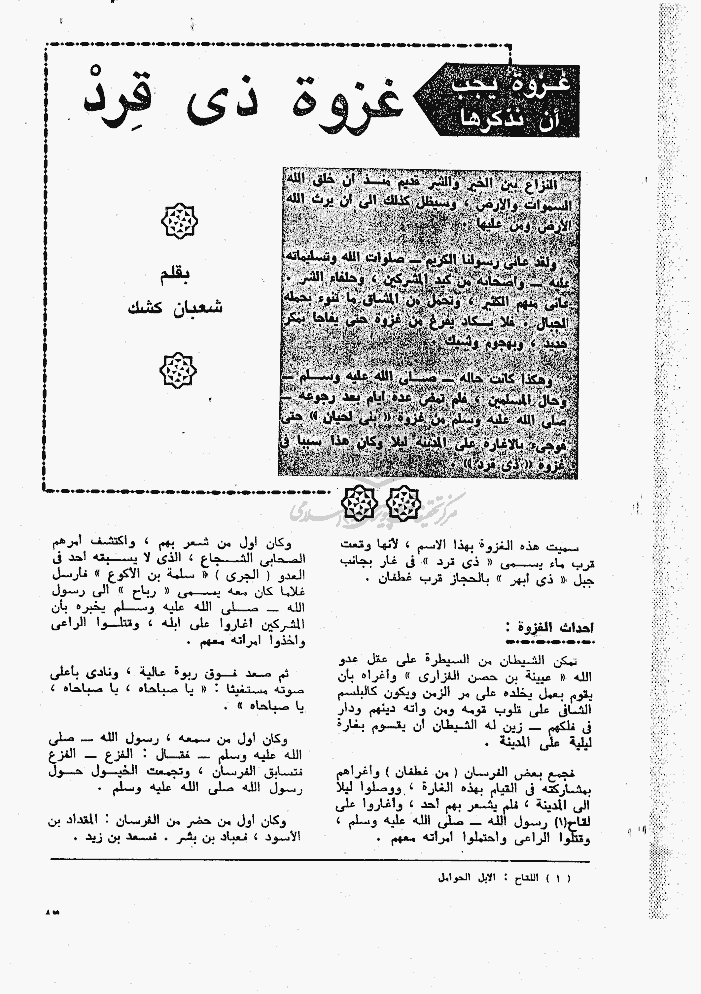 غزوة يجب
أن نذكرها
غزوة ذى قِردْ
النزاع بين الخير والشر قديم منــذ أن خلق الله
السموات والارض ، وسيظل كذلك الى ان يرث الله
الأرض ومن عليها .
ولقد عانى رسولنا الكريم ـ صلوات الله وتسليماته
عليه ـ وأصحابه من كيد المشركين ، وحلفاء الشر .
عانى منهم الكثير ، وتحمل من المشاق ما تنوء بحمله
الجبال . فلا يــكاد يفرغ من غزوة حتى يفاجأ بمكر
جديد ، وبهجوم وشيك .
وهكذا كانت حاله ـ صــلى الله عليه وســلم ـ
وحال المسلمين ، فلم تمض عدة ايام بعد رجوعه ـ
صلى الله عليه وسلم من غزوة « بنى لحيان » حتى
فوجىء بالاغارة على المدينة ليلا وكان هذا سببا فى
غزوة « ذى قرد » .
بقلم
شعبان كشك
سميت هذه الغزوة بهذا الاسم ، لأنها وقعت
قرب ماء يســمى « ذى قرد » فى غار بجانب
جبل « ذى أبهر » بالحجاز قرب غطفان .
أحداث الغزوة :
تمكن الشيطان من السيطرة على عقل عدو
الله « عيينة بن حصن الفزارى » وأغراه بأن
يقوم بعمل يخلده على مر الزمن ويكون كالبلسم
الشافى على قلوب قومه ومن واته دينهم ودار
فى فلكهم ـ زين له الشيطان أن يقــوم بغارة
ليلية على المدينة .
فجمع بعض الفرسان ( من غطفان ) وأغراهم
بمشاركته فى القيام بهذه الغارة ، ووصلوا ليلا
الى المدينة ، فلم يشعر بهم أحد ، وأغاروا على
لقاح(١) رسول الله ـ صلى الله عليه وسلم ،
وقتلوا الراعى واحتملوا امرأته معهم .
وكان أول من شعر بهم ، واكتشف أمرهم
الصحابى الشــجاع ، الذى لا يســبقه أحد فى
العدو ( الجرى ) « سلمة بن الأكوع » فأرسل
غلاما كان معه يســمى « رباح » الى رسول
الله ـ صــلى الله عليه وســلم يخبره بأن
المشركين أغاروا على ابله ، وقتلــوا الراعى
وأخذوا امرأته معهم .
ثم صعد فــوق ربوة عالية ، ونادى بأعلى
صوته مستغيثا : « يا صباحاه ، يا صباحاه ،
يا صباحاه » .
وكان أول من سمعه ، رسول الله ـ صلى
الله عليه وسلم ـ فقــال : الفزع ـ الفزع
فتسابق الفرسان ، وتجمعت الخيــول حــول
رسول الله صلى الله عليه وسلم .
وكان أول من حضر من الفرسان : المقداد بن
الأسود ، فعباد بن بشر . فسعد بن زيد .
( ١ ) اللقاح : الابل الحوامل